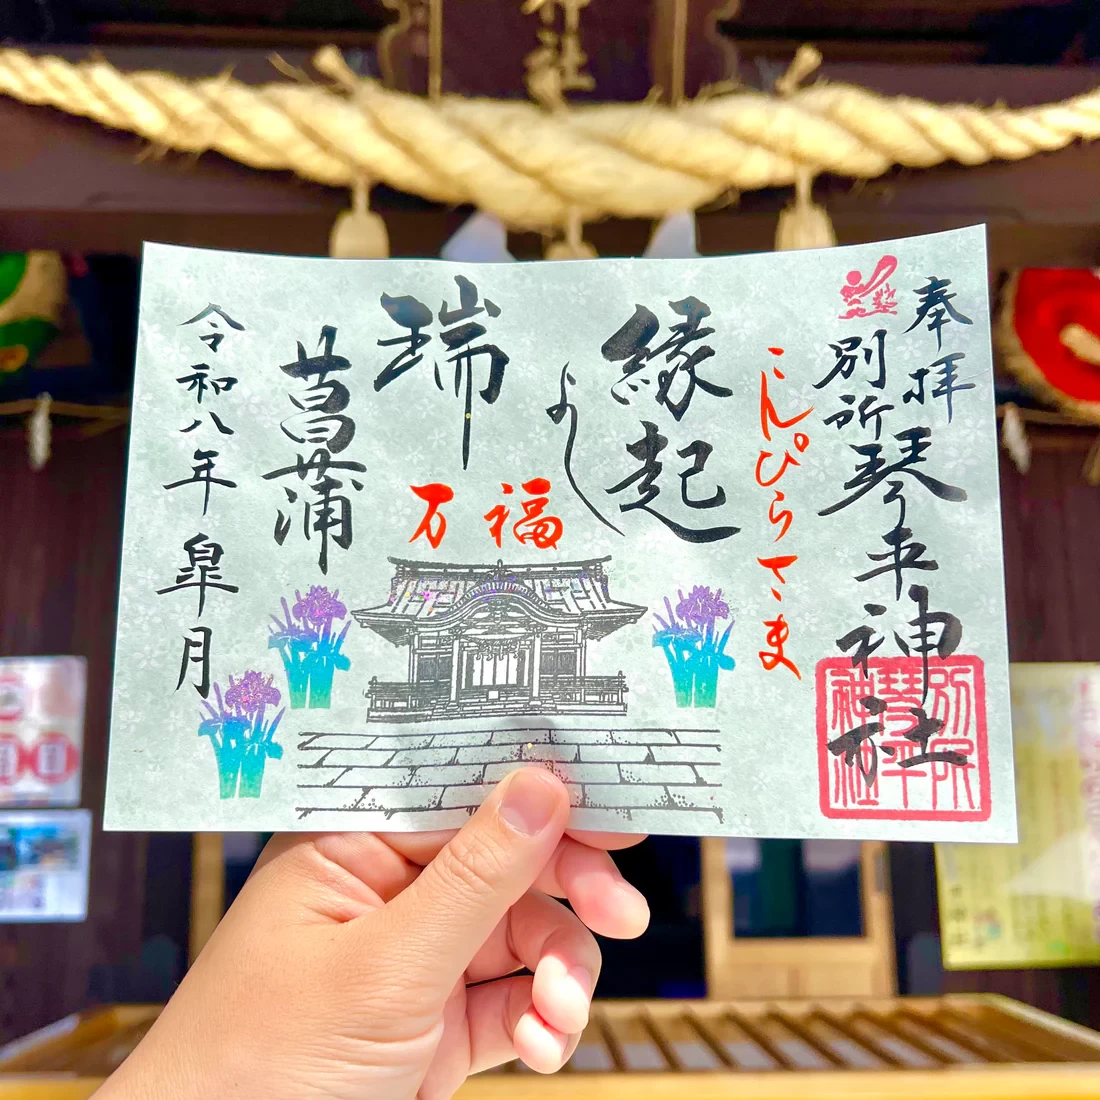 神社
奉拝
別所琴平神社
こんぴらさま
縁起
よし
瑞
万福
菖蒲
令和八年皐月
別所
琴平
神社